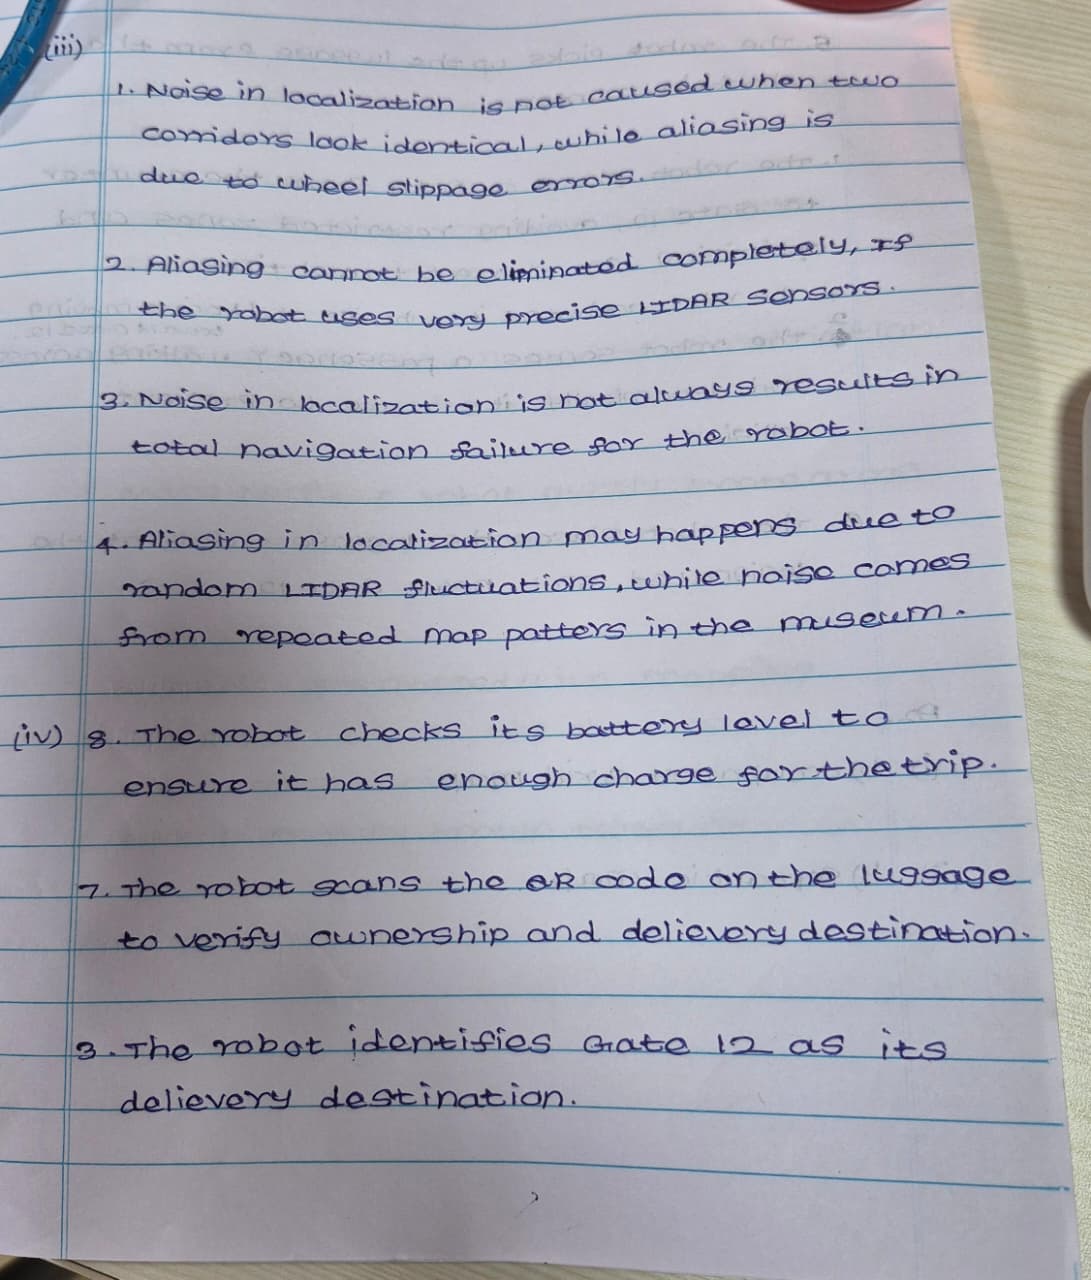 (iii)
1. Noise in localization is not caused when two
corridors look identical, while aliasing is
due to wheel slippage errors.
2. Aliasing cannot be eliminated completely, If
the robot uses very precise LIDAR sensors.
3. Noise in localization is not always results in
total navigation failure for the robot.
4. Aliasing in localization may happens due to
random LIDAR fluctuations, while noise comes
from repeated map patters in the museum.
(iv) 8. The robot checks its battery level to
ensure it has enough charge for the trip.
7. The robot scans the QR code on the luggage
to verify ownership and delievery destination.
3. The robot identifies Gate 12 as its
delievery destination.